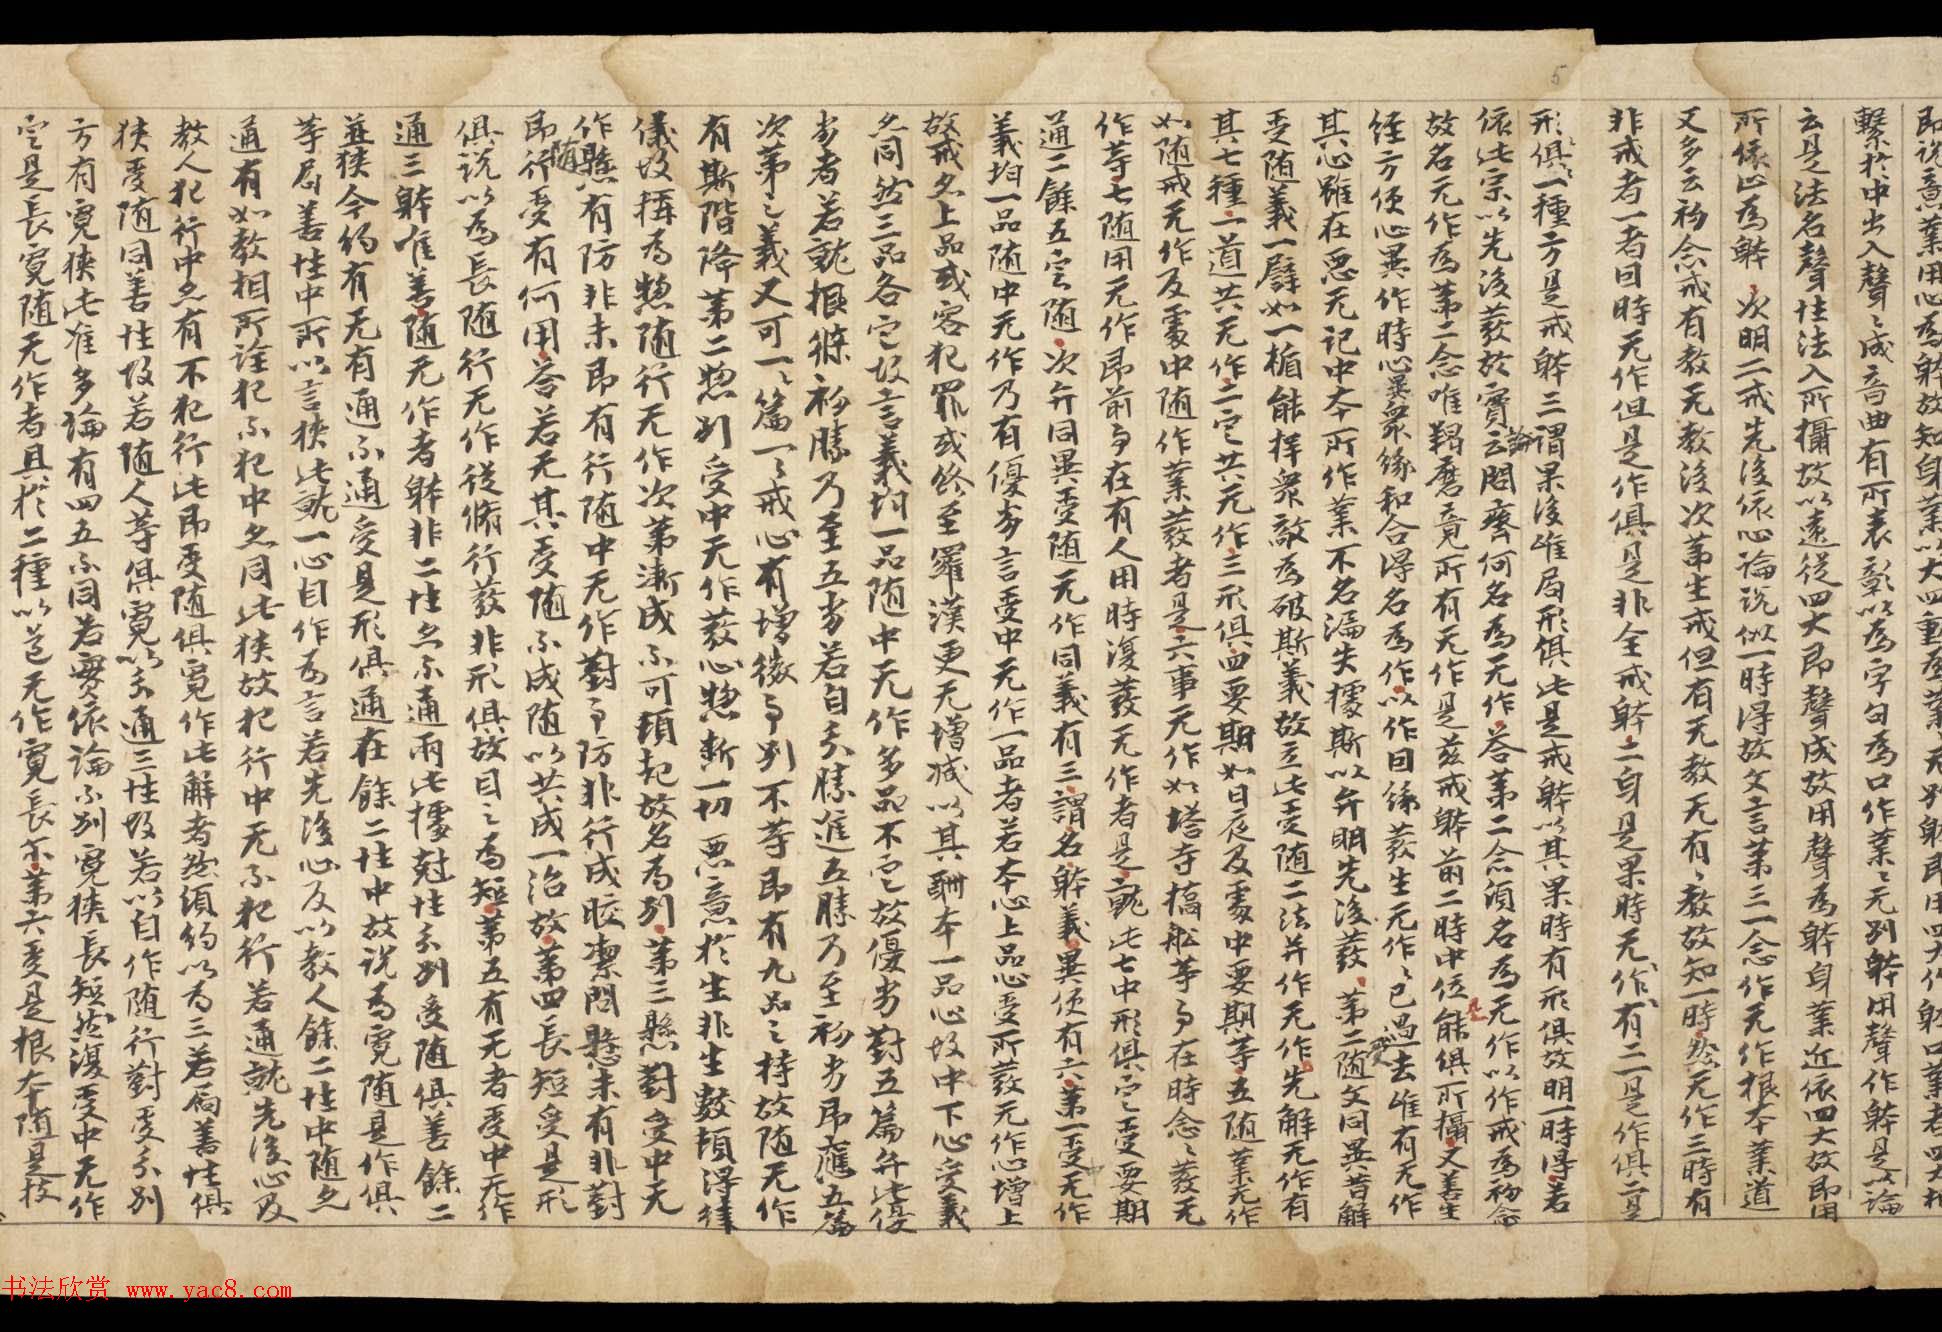 即说意業用心為躰故知身業以大四動為業
繫於中出入聲〻成音曲有所表彰以為字句為口作業〻无別躰用聲作躰是以論
云是法名聲性法入所攝故以遠從四大即聲成故用聲為躰身業近依四大故即用
所依以為躰次明二戒先後依心論說似一時得故文言第三一念作无作根本業道
又多云初念戒有教无教後次第生戒但有无教无有〻教故知一時然无作三時有
非戒者一者因時无作但是作俱是非全戒躰二身是果時无作有二一是作俱二是
形俱一種方是戒躰三謂果後唯局形俱此是戒躰以其果時有形俱故明一時得若
依此宗以先後發於實論云問齊何名為无作答第二念須名為无作以作戒為初念
故名无作為第二念唯羯磨竟所有无作是茲戒躰前二時中位能俱所攝又善生
經方便心異作時心異眾緣和合得名為作以作因緣發生无作〻已過去唯有无作
其心雖在惡无記中本所作業不名漏失據斯以弁明先後發第二受随文同異昔解
受随義一譬如一楯能捍眾敵為破斯義故立此受随二法并作无作先解无作有
其七種一道共无作二定共无作三形俱四要期如日夜及處中要期等五随業无作
如随戒无作及處中随作業發者是六事无作如塔寺橋舩等事在時念〻發无
作等七随用无作即前事在有人用時復發无作者是就此七中形俱定受要期
通二餘五定随次弁同異受随无作同義有三謂名躰義異便有六第一受无作
義均一品随中无作乃有優劣言受中无作一品者若本心上品心受所發无作心增上
故戒名上品或容犯罪或終至羅漢更无增減以其酬本一品心故中下心受義
名同然三品各定故言義均一品随中无作多品不定故優劣對五篇弁此優
劣者若就根條初勝乃至五劣若自至勝進五勝乃至初劣即應五篇
次第之義又可一〻篇一〻戒心有增微事別不等即有九品之持故随无作
有斯階降第二惣別受中无作發心惣斷一切惡意於生非生數頓得律
儀故稱為惣随行无作次第漸成不可頓起故名為別第三懸對受中无
作懸有防非未即有行随中无作對事防非行成皎潔問懸未有非對
即行受有何用答若无其受随不成随以共成一治故第四長短受是形
俱說以為長随行无作從修行發非形俱故目之為短第五有无者受中无作
通三躰唯善随无作者躰非二性名不通兩此據對性以別受随俱善餘二
並狹今約有无有通不通受是形俱通在餘二性中故說為寬随是作俱
等局善性中所以言狹此就一心自作為言若先後心及以教人餘二性中随名
通有如教相所詮犯不犯中名同此狹故犯行中无不犯行若通就先後心及
教人犯行中名有不犯行此即受随俱寬作此解者然須約以為三若局善性俱
狹受随同善性故若随人等俱寬以通三性故若以自作随行對受以別
方有寬狹此准多論有四五不同若實依論不別寬狹長短然復受中无作
定是長寬随无作者且於二種以道无作寬長示第六受是根本随是枝
5
书法欣赏 www.yac8.com